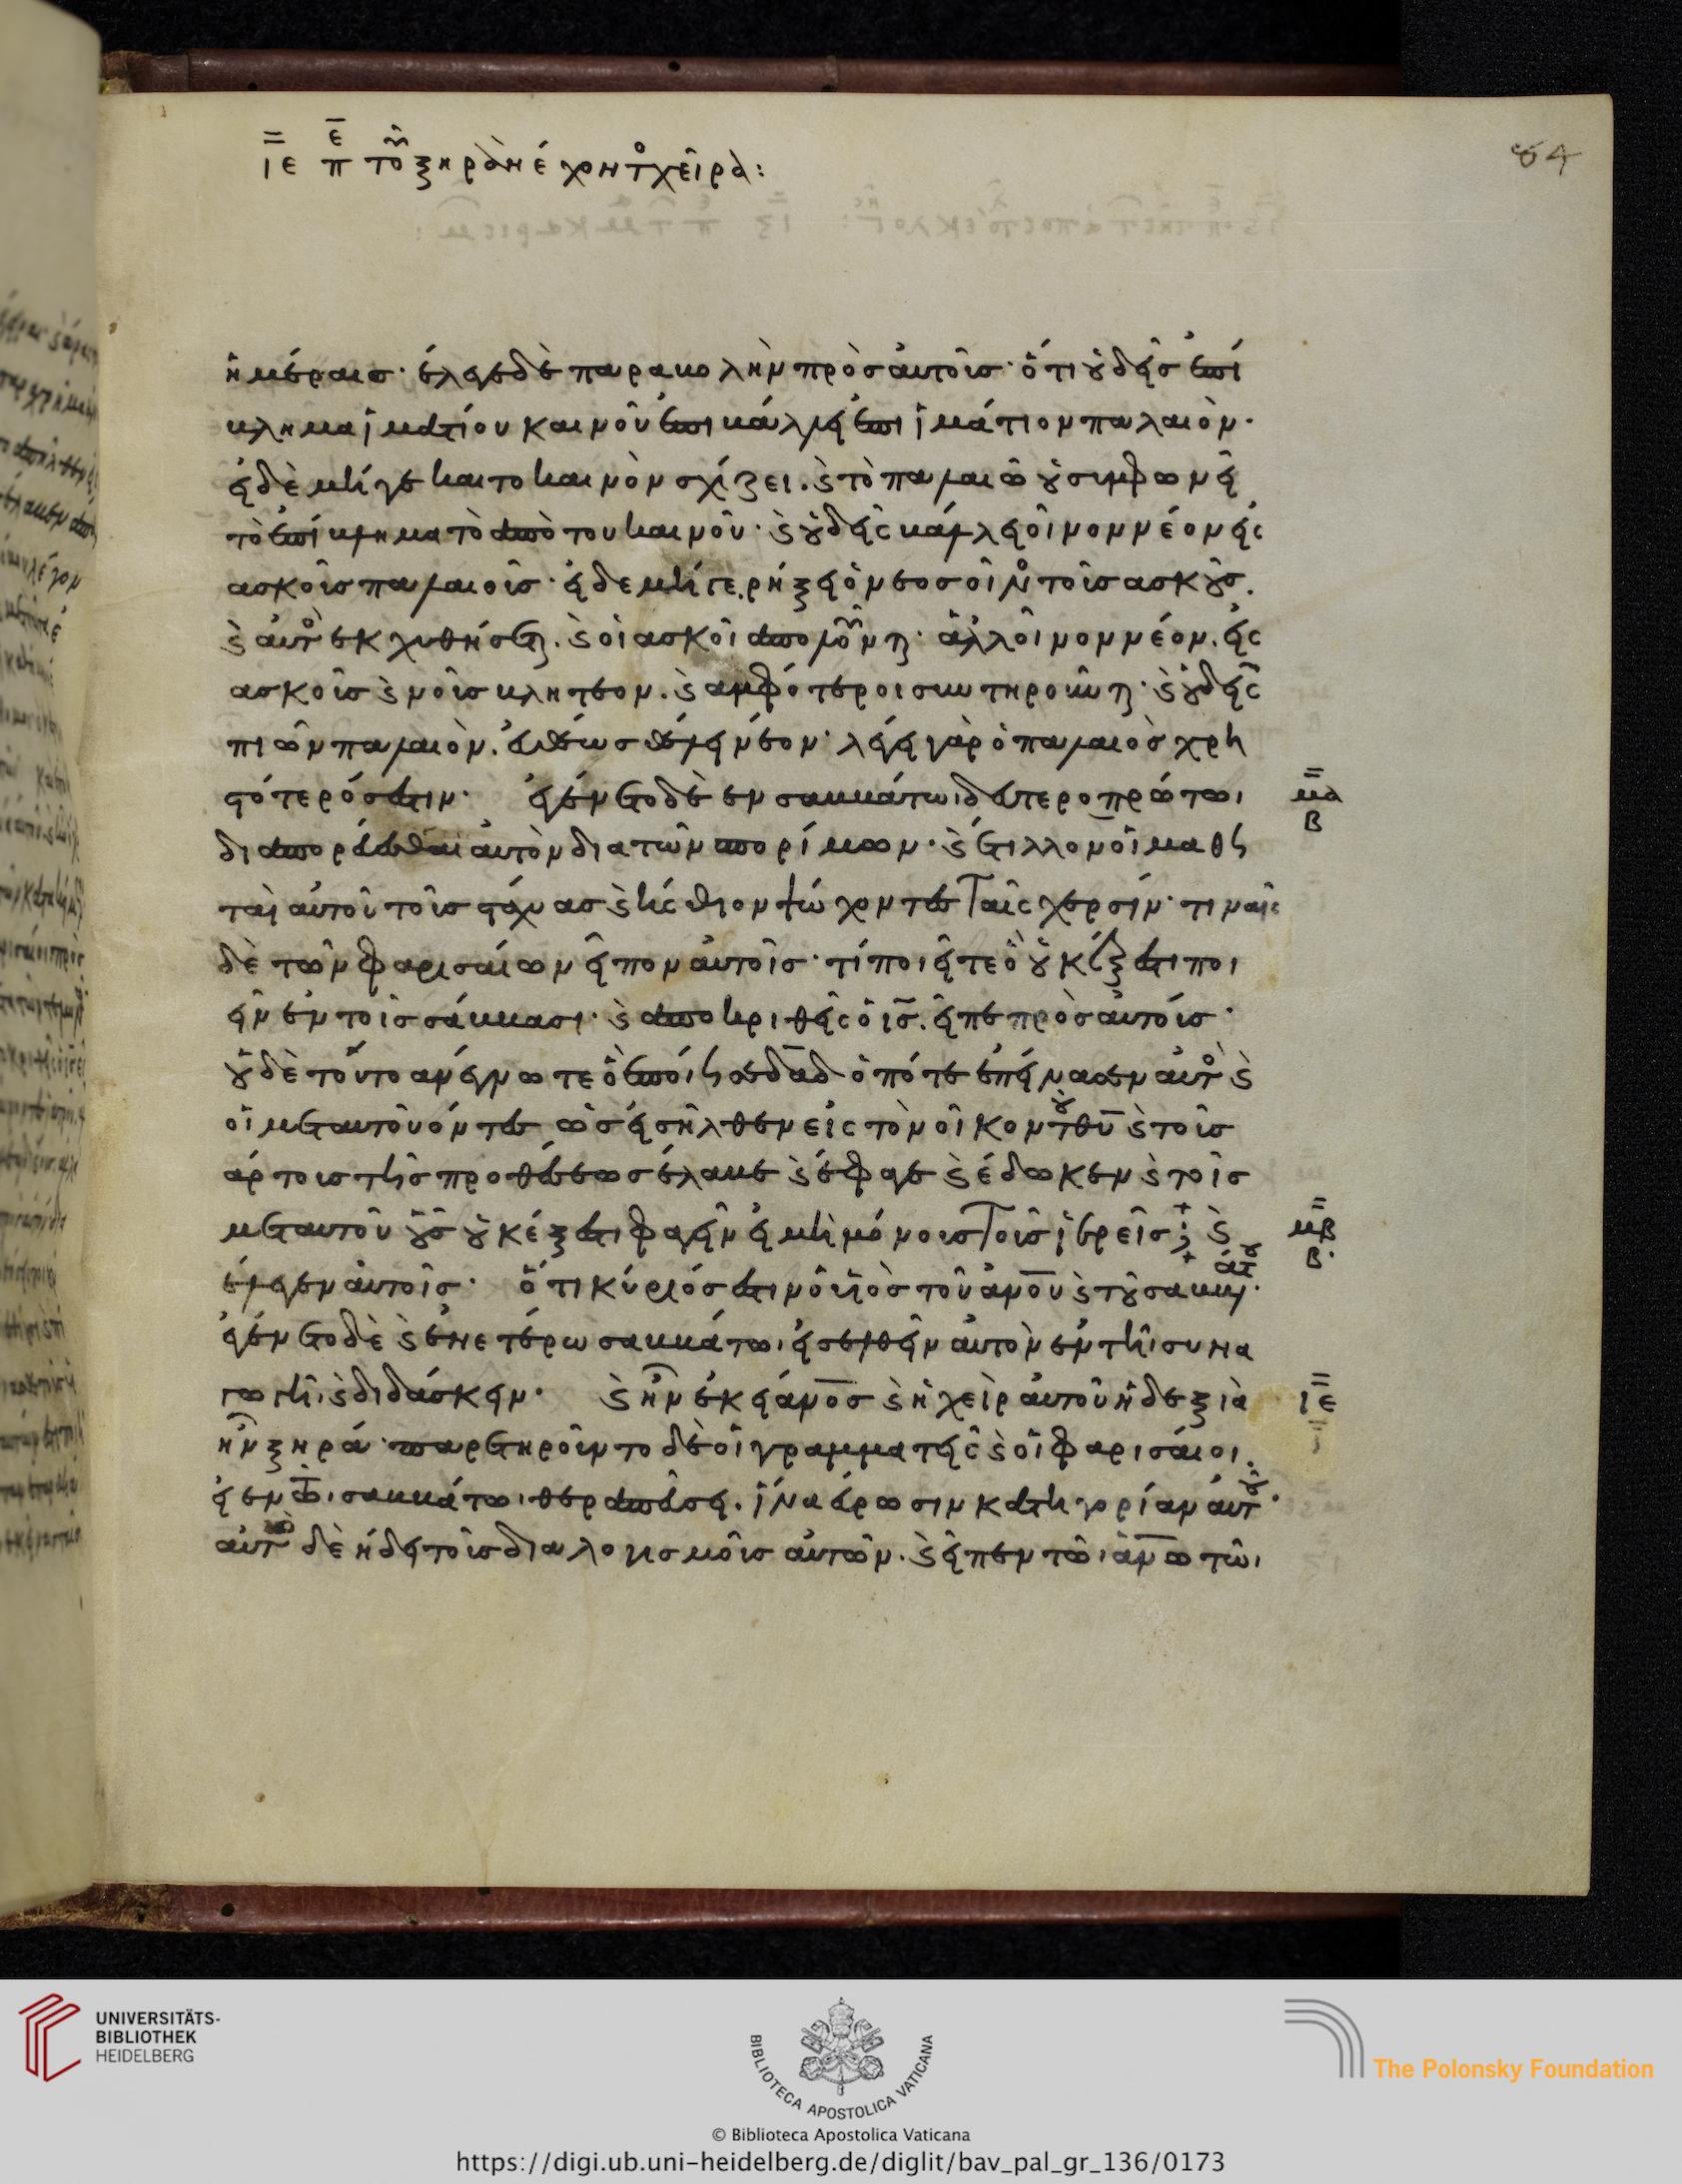 ιε πε τοῦ ξηρὰν ἔχοντος χεῖρα:
84
ἡμέραις· ἔλεγε δὲ παραβολὴν πρὸς αὐτοῖς· ὅτι οὐδεὶς ἐπί
βλημα ἱματίου καινοῦ ἐπιβάλλει ἐπι ἱμάτιον παλαιὸν·
εἰ δὲ μήγε και το καινὸν σχίζει. καὶ τὸ παλαιῶ οὐ συμφωνεῖ
τὸ ἐπίβλημα τὸ ἀπὸ του καινοῦ· καὶ οὐδεὶς βάλλει οἶνον νέον εἰς
ασκοῖς παλαιοῖς· εἰ δε μήγε. ρήξει ὁ νέος οἶνος τοῖς ασκοῦς.
καὶ αὐτὸς ἐκχυθήσεται. καὶ οἱ ασκοὶ ἀπολοῦνται· ἀλλ οἶνον νέον. εἰς
ασκοῖς καινοῖς βλητέον. καὶ αμφότεροι συντηροῦνται· καὶ οὐδεὶς
πιῶν παλαιὸν. εὐθέως θέλει νέον· λέγει γὰρ ὁ παλαιὸς χρη
στότερός ἐστιν· ἐγένετο δὲ ἐν σαββάτωι δευτεροπρώτωι
μα
β
διαπορεύεσθαι αὐτὸν δια τῶν σπορίμων· καὶ ἔτιλλον οἱ μαθη
ταὶ αὐτοῦ τοῖς στάχυας καὶ ἤσθιον ψώχοντες ταῖς χερσίν· τιναὶς
δὲ τῶν φαρισαίων εἶπον αὐτοῖς· τί ποιεῖτε ὃ οὐκ ἔξεστι ποι
εῖν ἐν τοῖς σάββασι· καὶ ἀποκριθεὶς ὁ ις. εἶπε πρὸς αὐτοίς·
οὐδὲ τοῦτο ανέγνωτε ὃ ἐποίησε δαδ ὁπότε ἐπείνασεν αὐτὸς καὶ
οἱ μετ αυτοῦ όντες ὡς εἰσῆλθεν εἰς τὸν οἶκον τοῦ θυ καὶ τοῖς
άρτοις τῆς προθέσεως έλαβε καὶ έφαγε καὶ έδωκεν καὶ τοῖς
μετ αυτοῦ οὓς οὐκ έξεστι φαγεῖν εἰ μὴ μόνοις τοῖς ἱερεῖς; καὶ
μβ
β·
έλεγεν αὐτοῖς· ὅτι κύριός ἐστιν ὁ υἱὸς τοῦ ανου καὶ τοῦ σαββάτου·
ἐγένετο δὲ καὶ ἐν ετέρω σαββάτωι εἰσελθεῖν αὐτὸν ἐν τῆι συνα
γωγῆι καὶ διδάσκειν· καὶ ἦν ἐκεῖ ανος καὶ ἡ χεὶρ αὐτοῦ ἡ δεξιὰ
ιε
ἦν ξηρά· παρετηροῦντο δὲ οἱ γραμματεῖς καὶ οἱ φαρισαίοι.
εἰ ἐν τῶι σαββάτωι θεραπεύσει. ἵνα εύρωσιν κατηγορίαν αὐτοῦ·
αὐτὸς δὲ ήδει τοῖς διαλογισμοῖς αὐτῶν. καὶ εἶπεν τῶι ανω τῶι
UNIVERSITÄTS-
BIBLIOTHEK
HEIDELBERG
BIBLIOTECA APOSTOLICA VATICANA
© Biblioteca Apostolica Vaticana
The Polonsky Foundation
https://digi.ub.uni-heidelberg.de/diglit/bav_pal_gr_136/0173